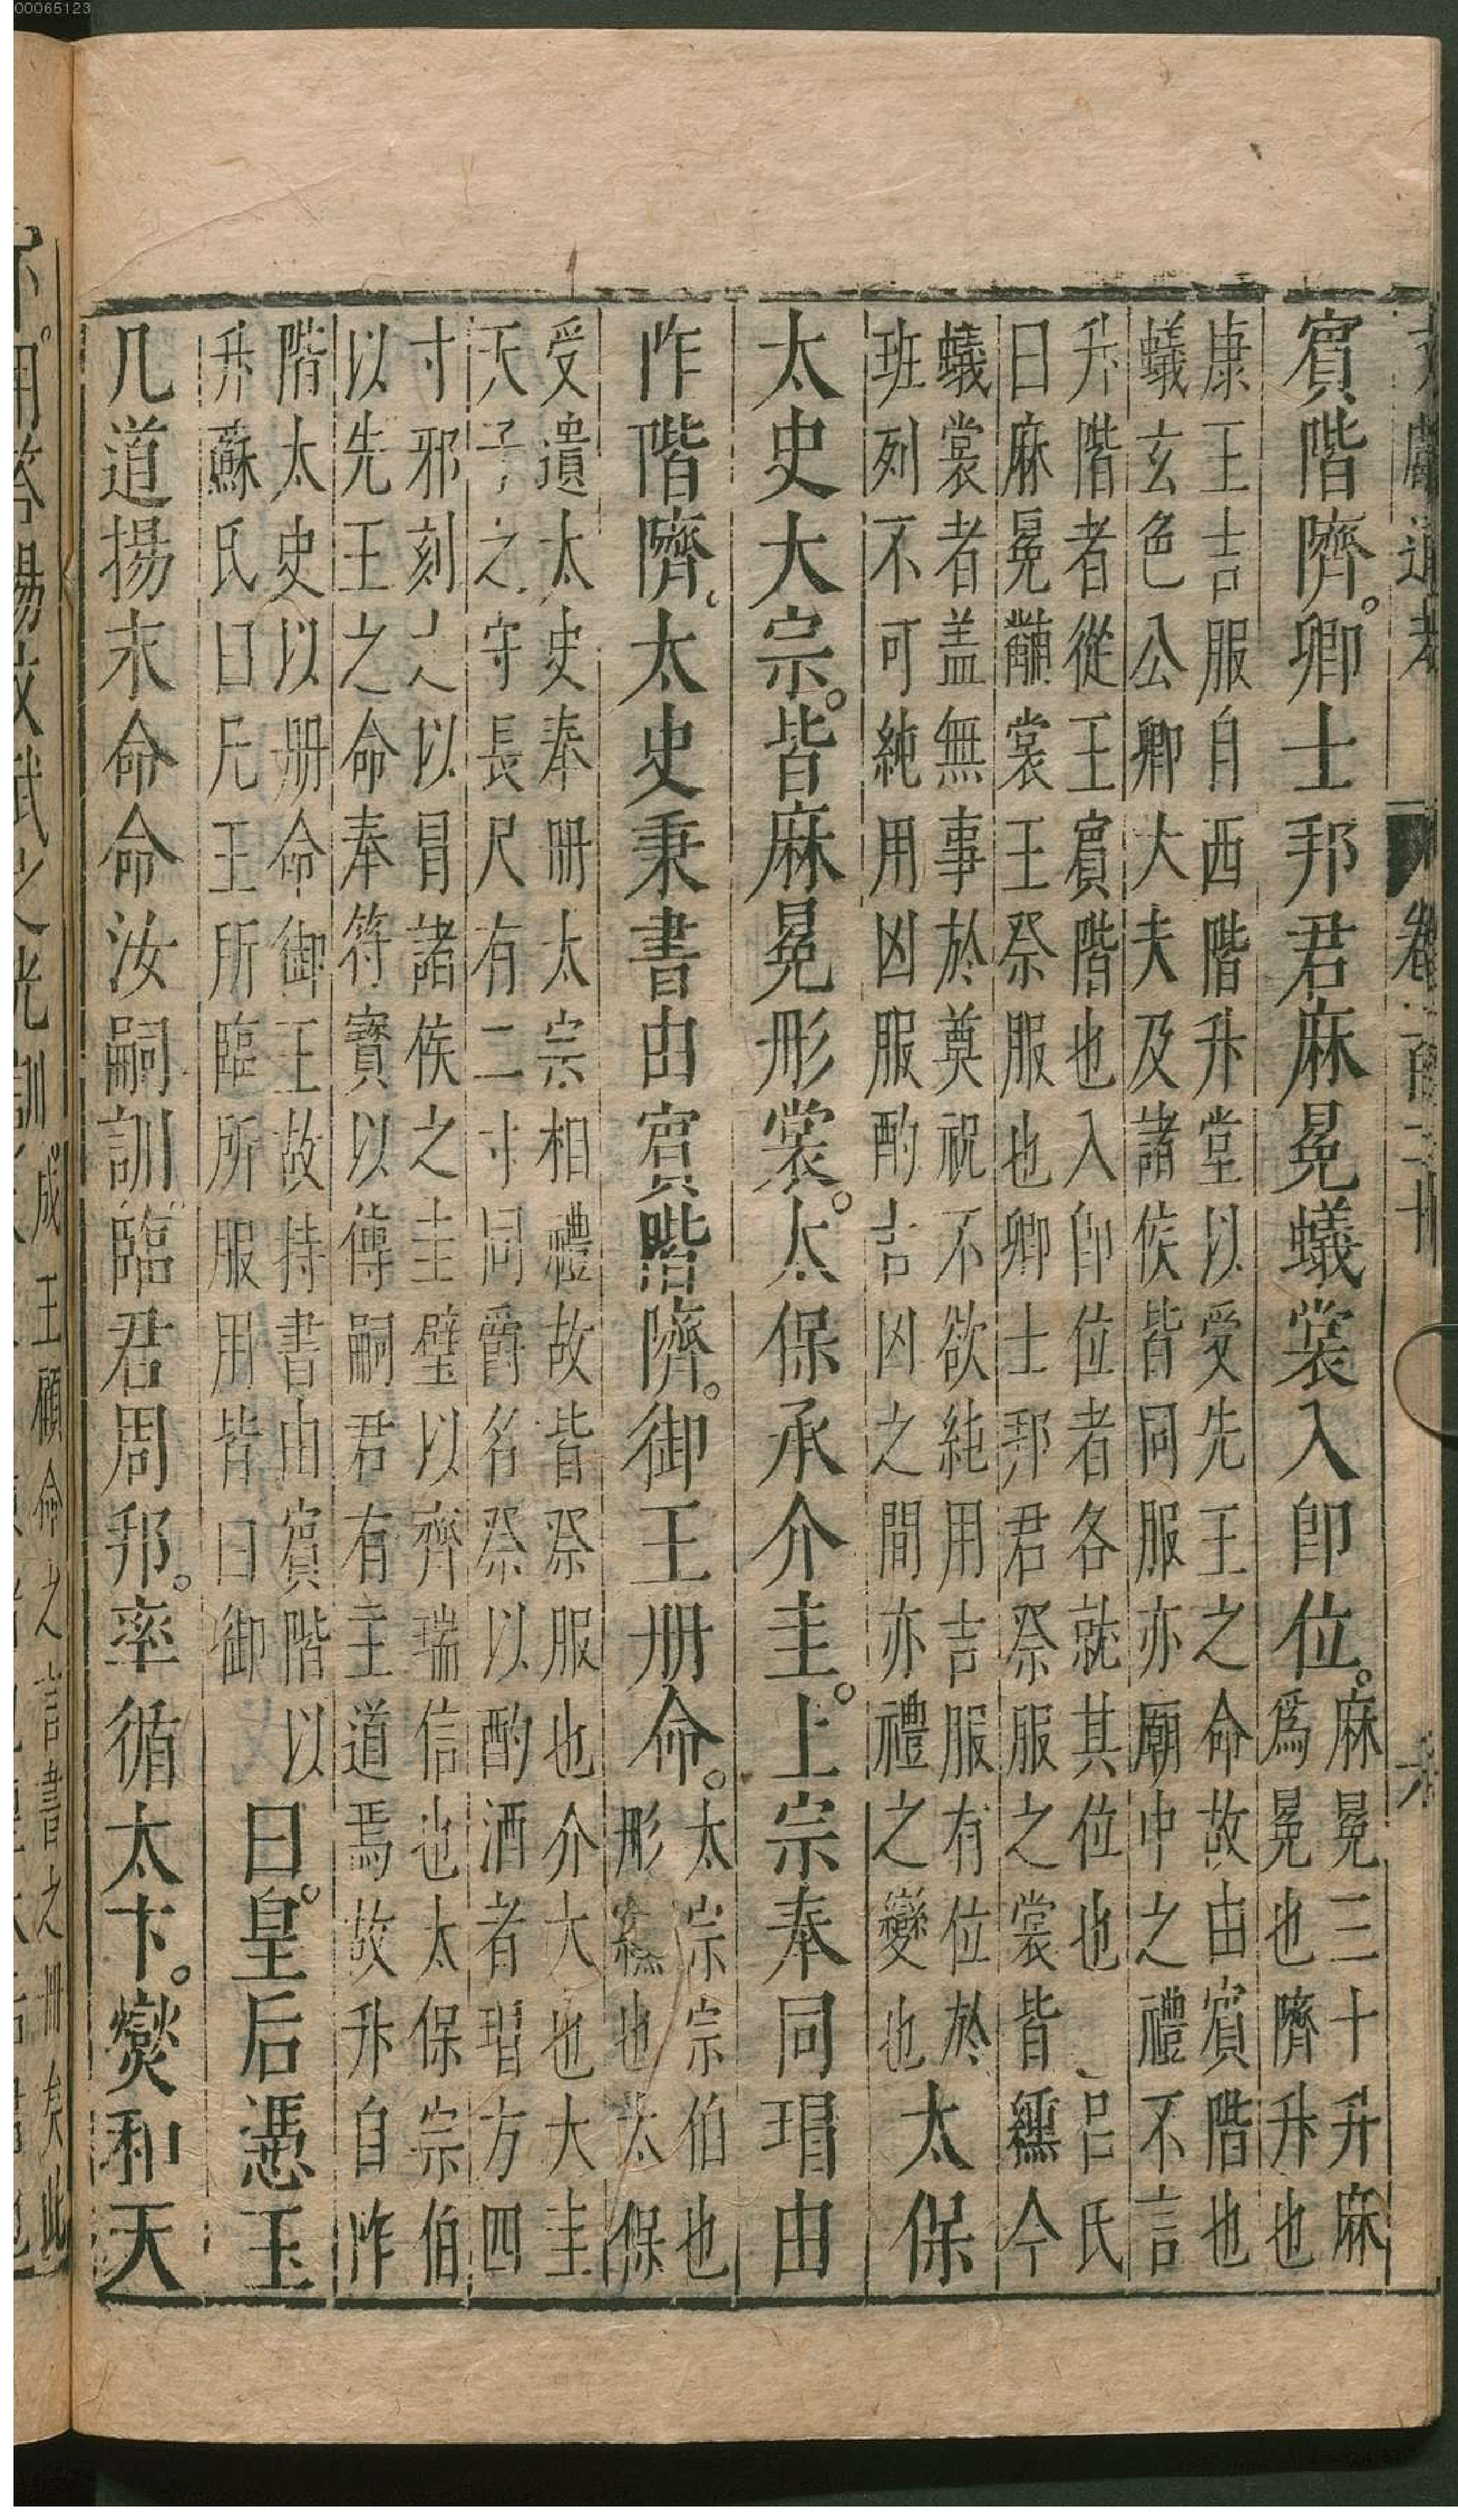 文獻通考 卷一百二十
賓階隮。卿士邦君麻冕蟻裳入卽位。
麻冕三十升麻
爲冕也隮升也
康王吉服自西階升堂以受先王之命故由賓階也
蟻玄色公卿大夫及諸侯皆同服亦廟中之禮不言
升階者從王賓階也入卽位者各就其位也 呂氏
曰麻冕黼裳王祭服也卿士邦君祭服之裳皆纁今
蟻裳者盖無事於奠祝不欲純用吉服有位於
班列不可純用凶服酌吉凶之間亦禮之變也
太保
太史大宗。皆麻冕彤裳。太保承介圭。上宗奉同瑁由
阼階隮、太史秉書由賓階隮。御王册命。
太宗宗伯也
彤纁也太保
受遺太史奉册太宗相禮故皆祭服也介大也大圭
天子之守長尺有二寸同爵名祭以酌酒者瑁方四
寸邪刻之以冒諸侯之圭璧以齊瑞信也太保宗伯
以先王之命奉符寳以傳嗣君有主道焉故升自阼
階太史以册命御王故持書由賓階以
升蘇氏曰凡王所臨所服用皆曰御
曰。皇后憑玉
几道揚末命命汝嗣訓。臨君周邦。率循太卞。燮和天
下。用答揚文武之光訓。
成王顧命之言書之册矣此
00065123